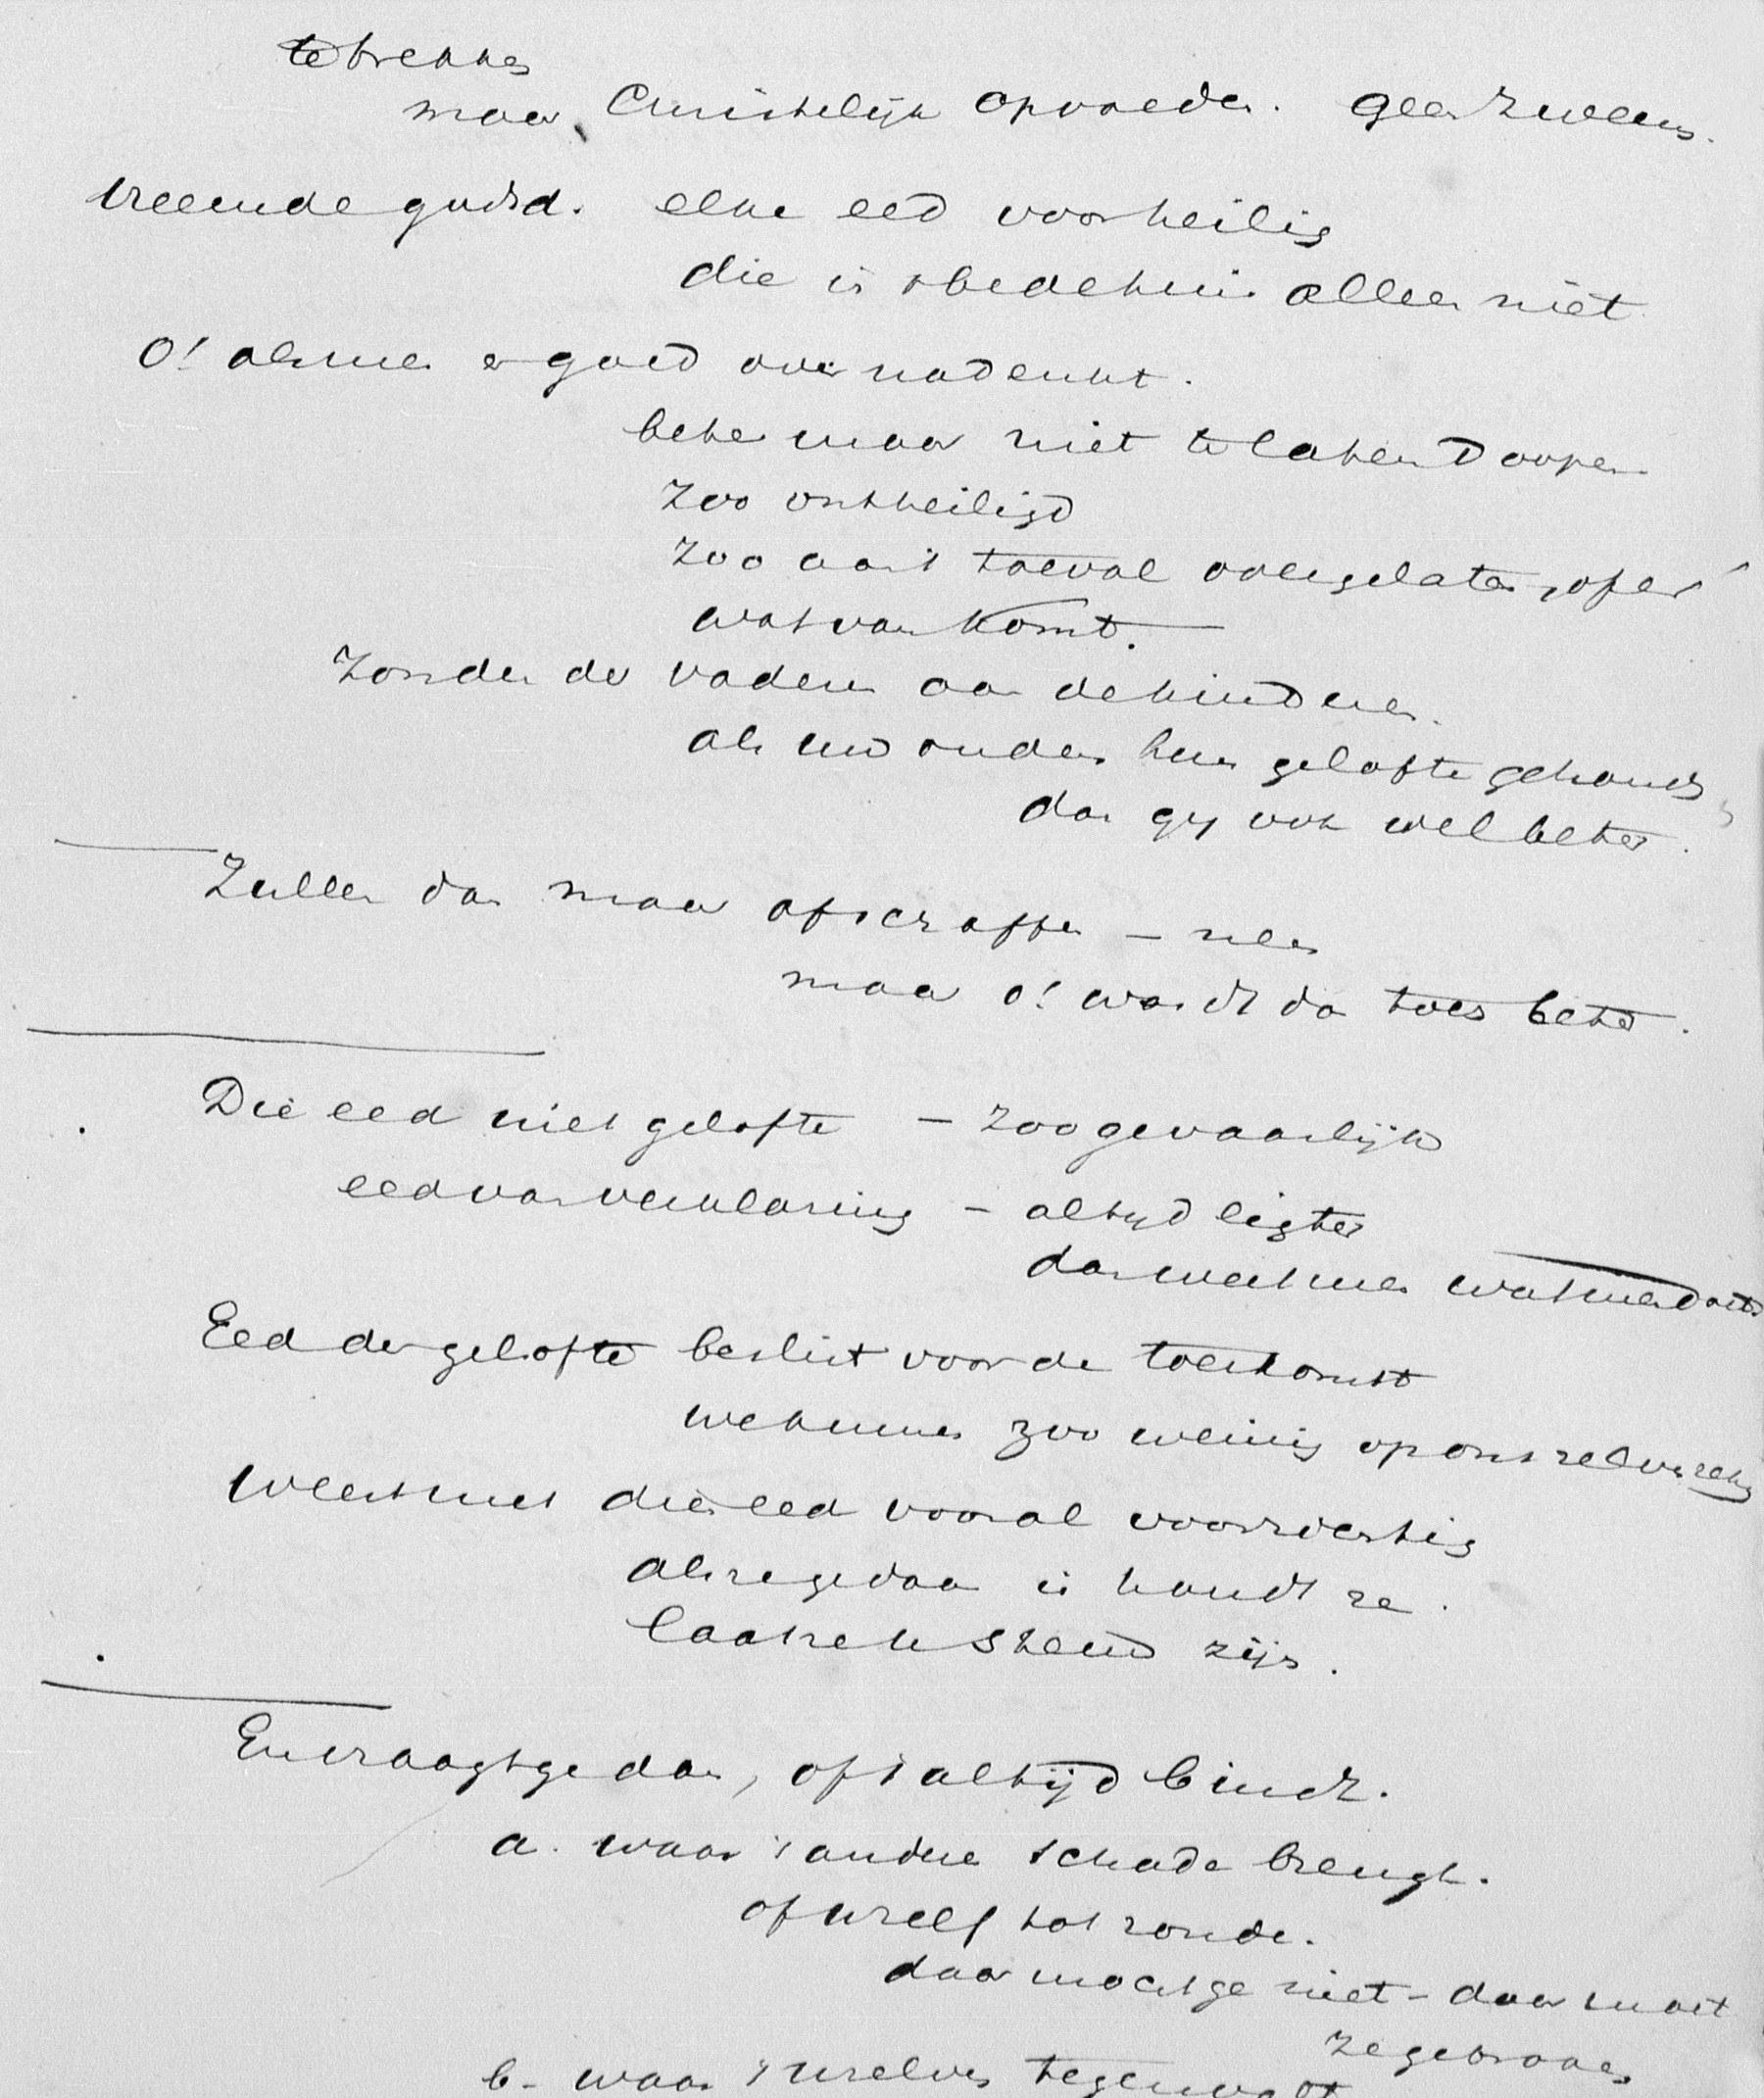 te trekken
maar Christelijk opvoeden. geen zweem.
vreemde godsd. elke eed voor heilig
die in 's bedehuis alleen niet
O! als men er goed over nadenkt.
beter maar niet te laten Doopen
zoo ontheiligd
zoo aan 't toeval overgelaten,
wat van komt.
zonder de vaderen aan de kinderen.
als uw ouders hun gelofte gehouden
dan gy ook wel beter.
Zullen dan maar afschaffen – neen
maar o! wordt dan toch beter.
Die eed niet gelofte – zoo gevaarlijk
eed van verklaring – altyd ligter
dan weet men wat men doet
Eed der gelofte beslist voor de toekomst
we kunnen zoo weinig op ons zelven rek.
Weest met dien eed vooral voorzichtig
als ze gedaan is houdt ze.
laat ze u steun zijn.
En vraagt ge dan, of 't altijd bindt.
a. waar 't andere schade brengt.
of u zelf tot zonde.
daar mocht ge niet – daar moet
ze gebroken
b. waar 't u zelven tegenvalt